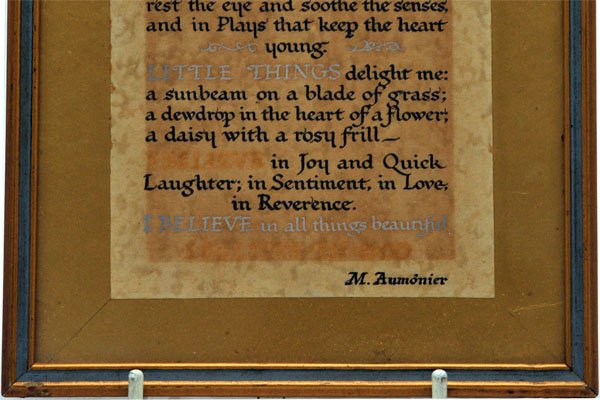 rest the eye and soothe the senses,
and in Plays that keep the heart
young.
LITTLE THINGS delight me:
a sunbeam on a blade of grass;
a dewdrop in the heart of a flower;
a daisy with a rosy frill—
in Joy and Quick
Laughter; in Sentiment, in Love,
in Reverence.
I BELIEVE in all things beautiful
M. Aumonier